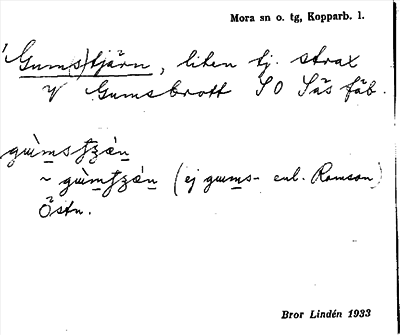 Mora sn o. tg, Kopparb. l.
'Gum(s)tjärn, liten tj. strax
V Gumsbrott SO Säs fäb.
(ej gums- enl. Romson)
Östn.
Bror Lindén 1933